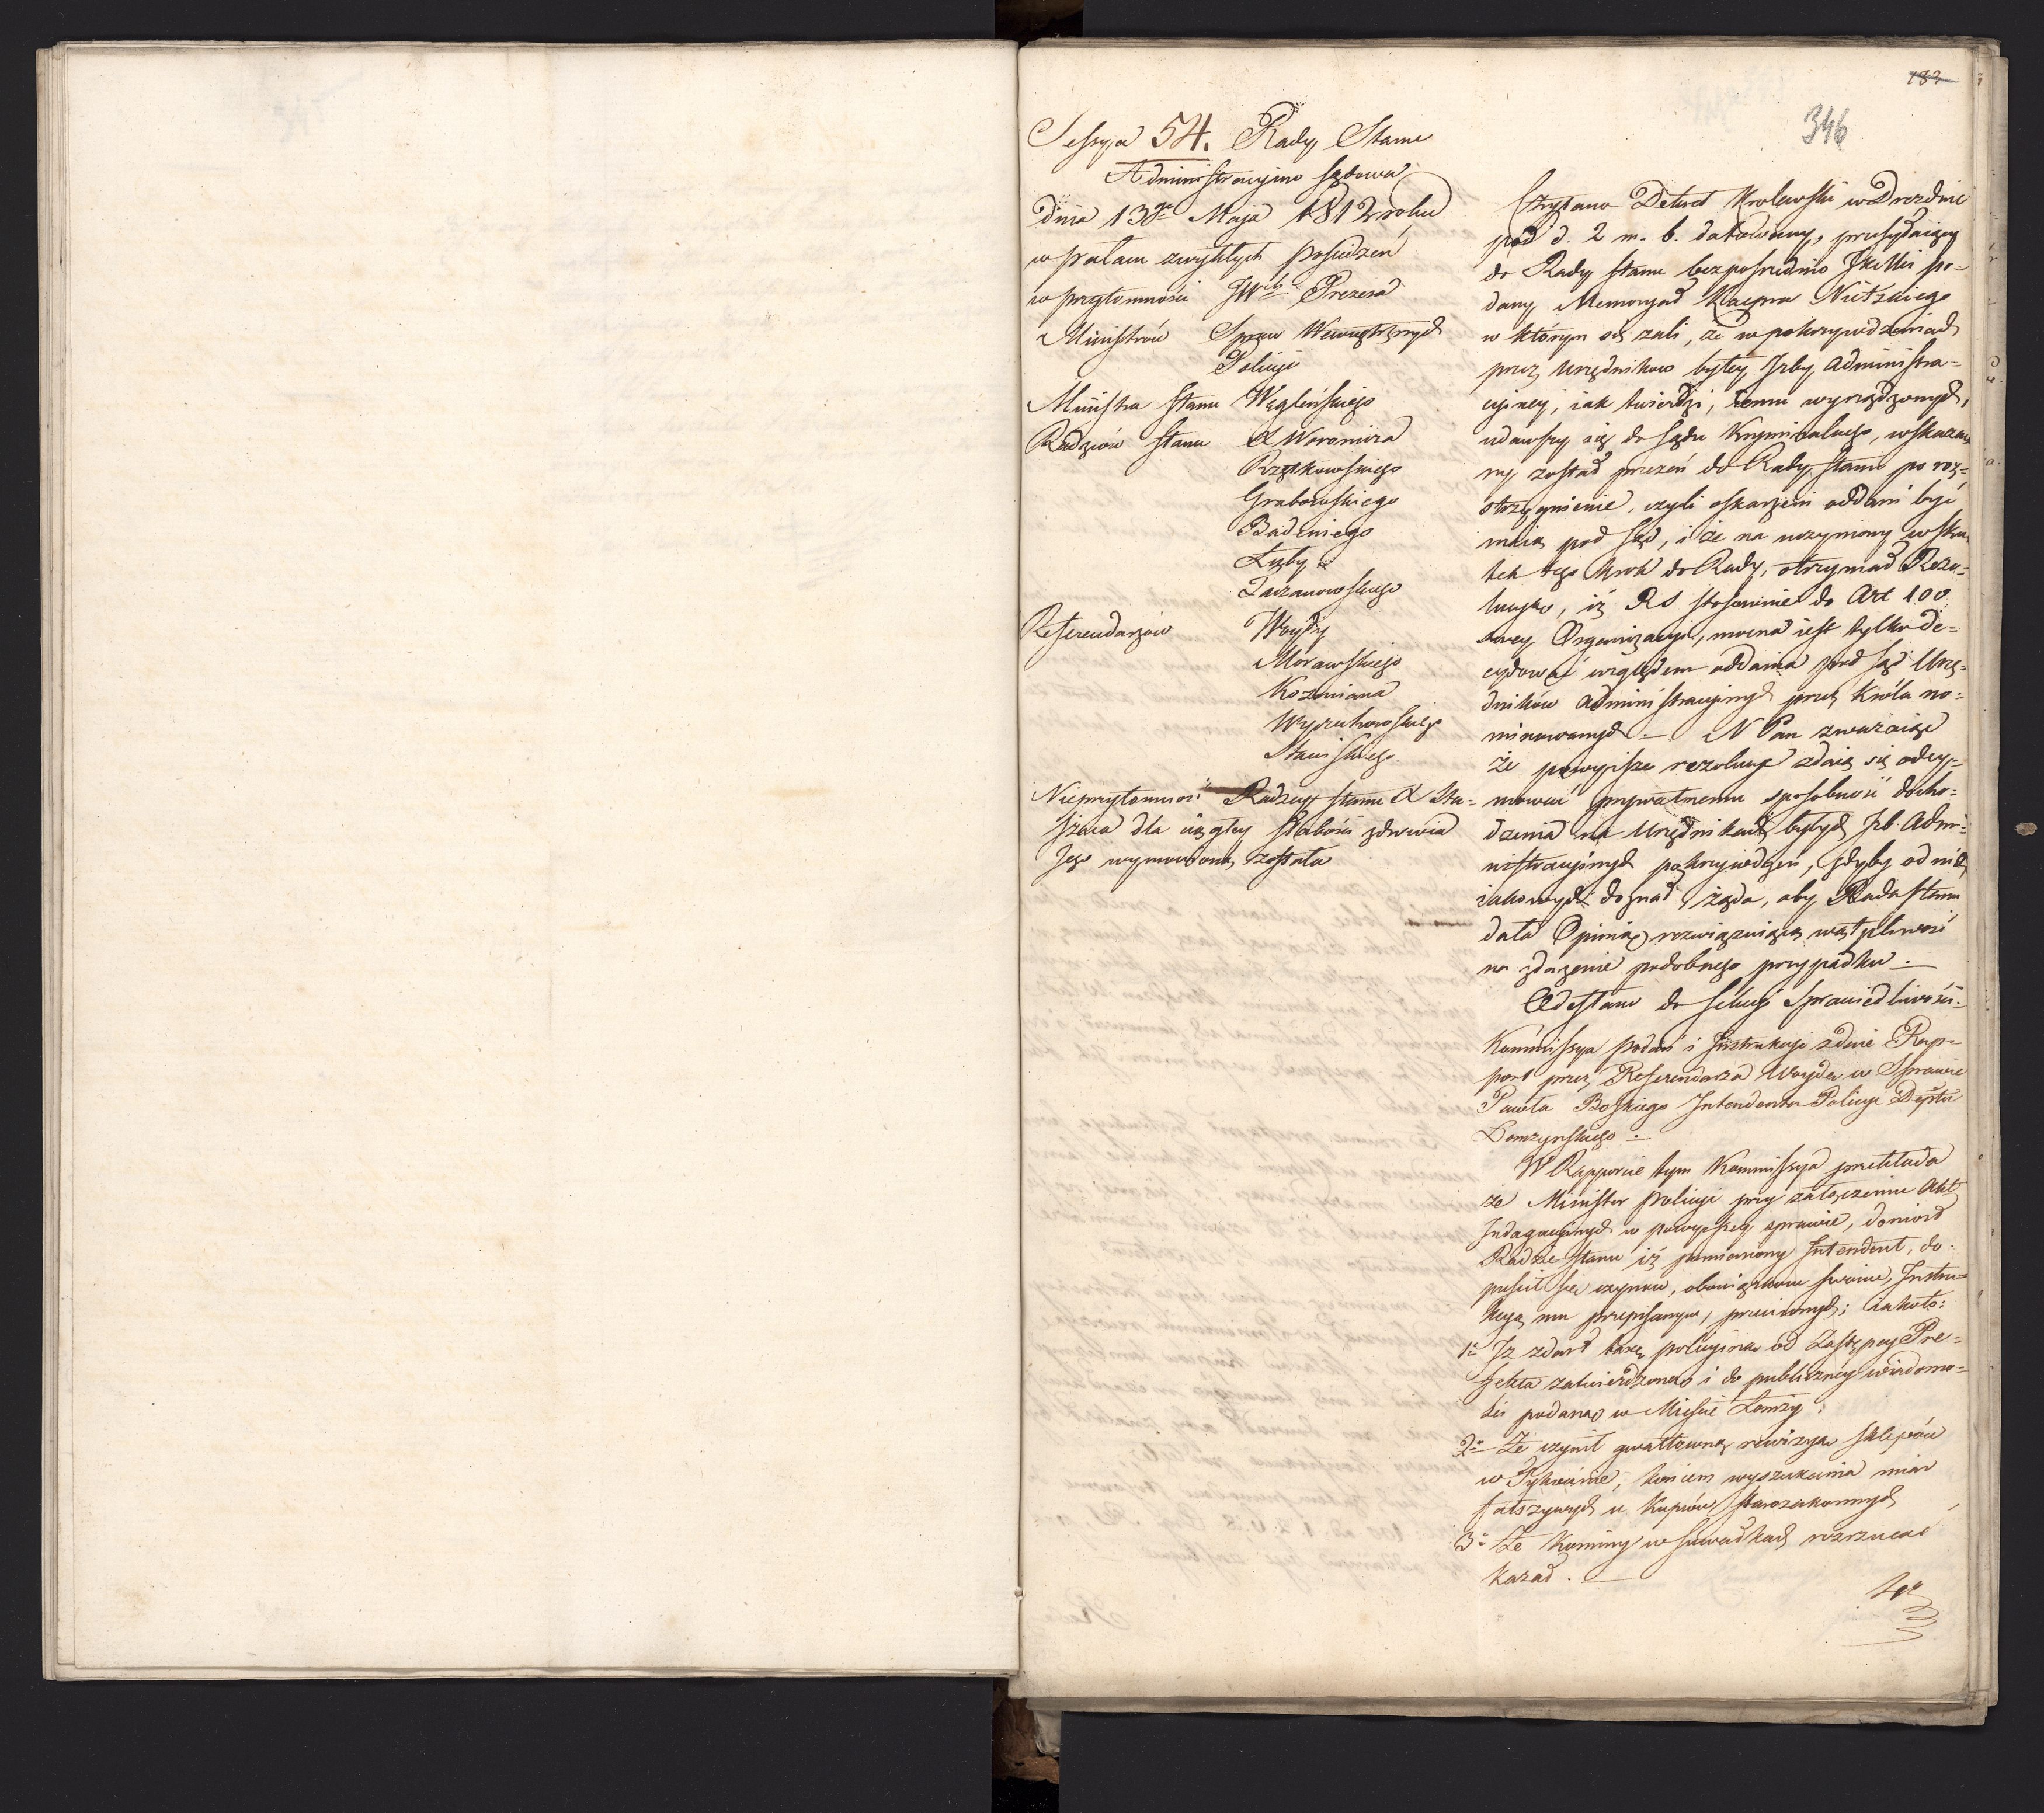 183
346
Sessya 54. Rady Stanu
Administracyino sądowa
dnia 13go Maja 1812 roku
w pałacu zwykłych posiedzeń
w przytomności JW Prezesa
Ministrów Spraw Wewnętrznych
Policyi
Ministra Stanu Węgleńskiego
Radzców Stanu X Woronicza
Rzętkowskiego
Grabowskiego
Badeniego
Łuby
Zaczanowskiego
Referendarzów Woydy
Morawskiego
Kozmiana
Wyczechowskiego
Staniskiego
Nieprzytomność Radzcy Stanu X Sta=
szica dla ciągłey słabości zdrowia
Jego wymowioną została
Czytano Dekret Krolewski w Dreznie
pod d. 2 m. b. datowany, przesyłaiący
do Rady Stanu bezpośrednio JKMci po=
dany Memoryał Kacpra Nietzkiego
w którym się żali, że w pokrzywdzeniach
przez Urzędnikow byłey Izby Administra=
cyiney, iak twierdzi, iemu wyrządzonych,
udawszy się do Sądu Kryminalnego, wskaza
ny został przezeń do Rady Stanu po roz=
strzygnienie, czyli oskarżeni oddani być
maią pod Sąd, i że na uczyniony w sku
tek tego krok do Rady, otrzymał Rezo=
lucyą, iż RS stosownie do Art 100
swey Organizacyi, mocna iest tylko de=
cydować względem oddania pod Sąd Urzę=
dników administracyinych przez Króla no=
minowanych. — N Pan zważaiąc
że powyższe rezolucye zdaią się odey=
mować prywatnemu sposobność docho=
dzenia na Urzędnikach byłych Izb Admi=
nistracyinych pokrzywdzeń, gdyby od nich
iakowych doznał żąda, aby Rada Stanu
dała Opinią rozwiązuiącą wątpliwość
na zdarzenie podobnego przypadku. —
Odesłano do Sekcyi Sprawiedliwości.
Kommissya podań i Instrukcyi zdaie Rap=
port przez Referendarza Woydę w Sprawie
Pawła Boskiego Intendenta Policyi Deptu
Łomzyńskiego. —
W Rapporcie tym Kommissya przekłada
że Minister Policyi przy załączeniu Akt
Indagacyinych w powyższey sprawie, doniosł
Radzie Stanu iż pomieniony Intendent, do=
puścił się czynów, obowiązkom swoim, Instru=
kcyą mu przepisanym, przeciwnych; iakoto:
1o Iż zdarł taxę policyiną od Zastępcy Pre=
fekta zatwierdzoną i do publiczney wiadomo=
ści podaną w Mieście Łomży;
2o Że czynił gwałtowną rewizyą sklepów
w Tykocinie, końcem wyszukania miar
fałszywych u Kupców starozakonnych
3o Że Kominy w Suwałkach rozrzucać
kazał. —
4o